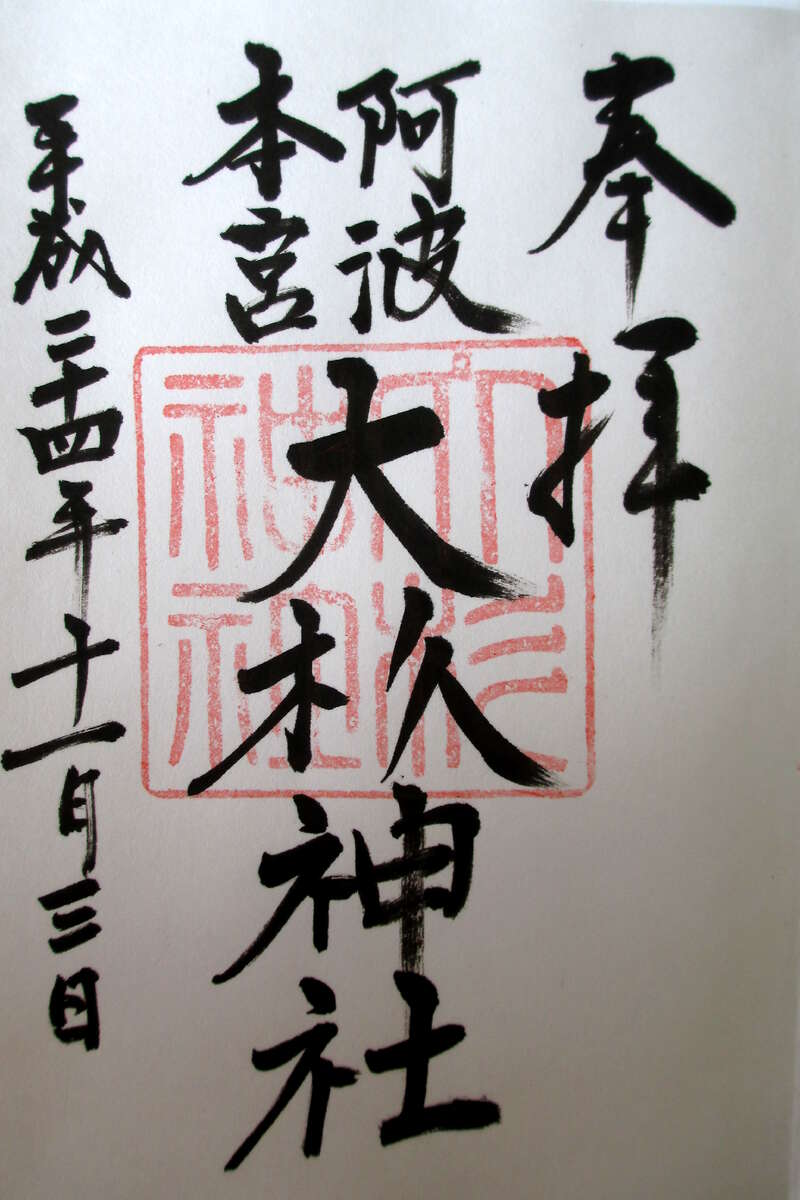 奉拝
阿波
本宮
大杦神社
平成二十四年十一月三日
大杉神社